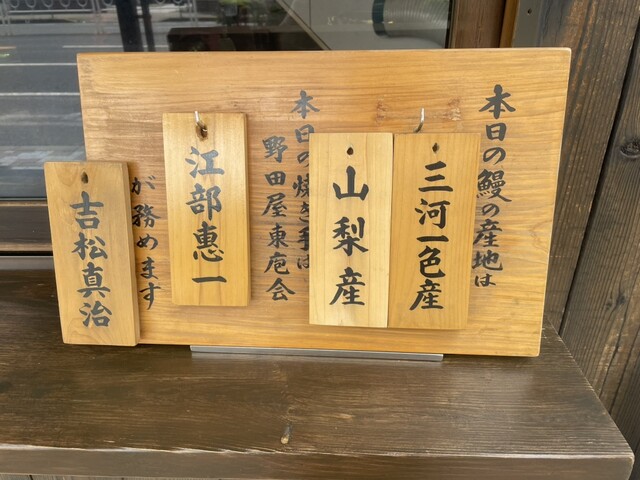 本日の鰻の産地は
三河一色産
山梨産
本日の焼き手は
野田屋東庖会
江部惠一
が務めます
吉松真治